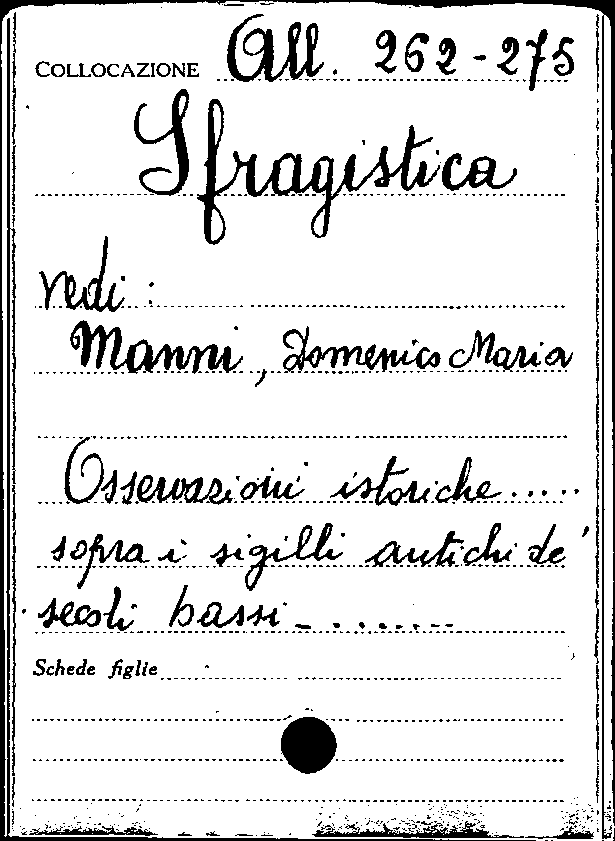 COLLOCAZIONE All. 262-275
Sfragistica
vedi:
Manni, Domenico Maria
Osservazioni istoriche.....
sopra i sigilli antichi de'
secoli bassi - ........
Schede figlie